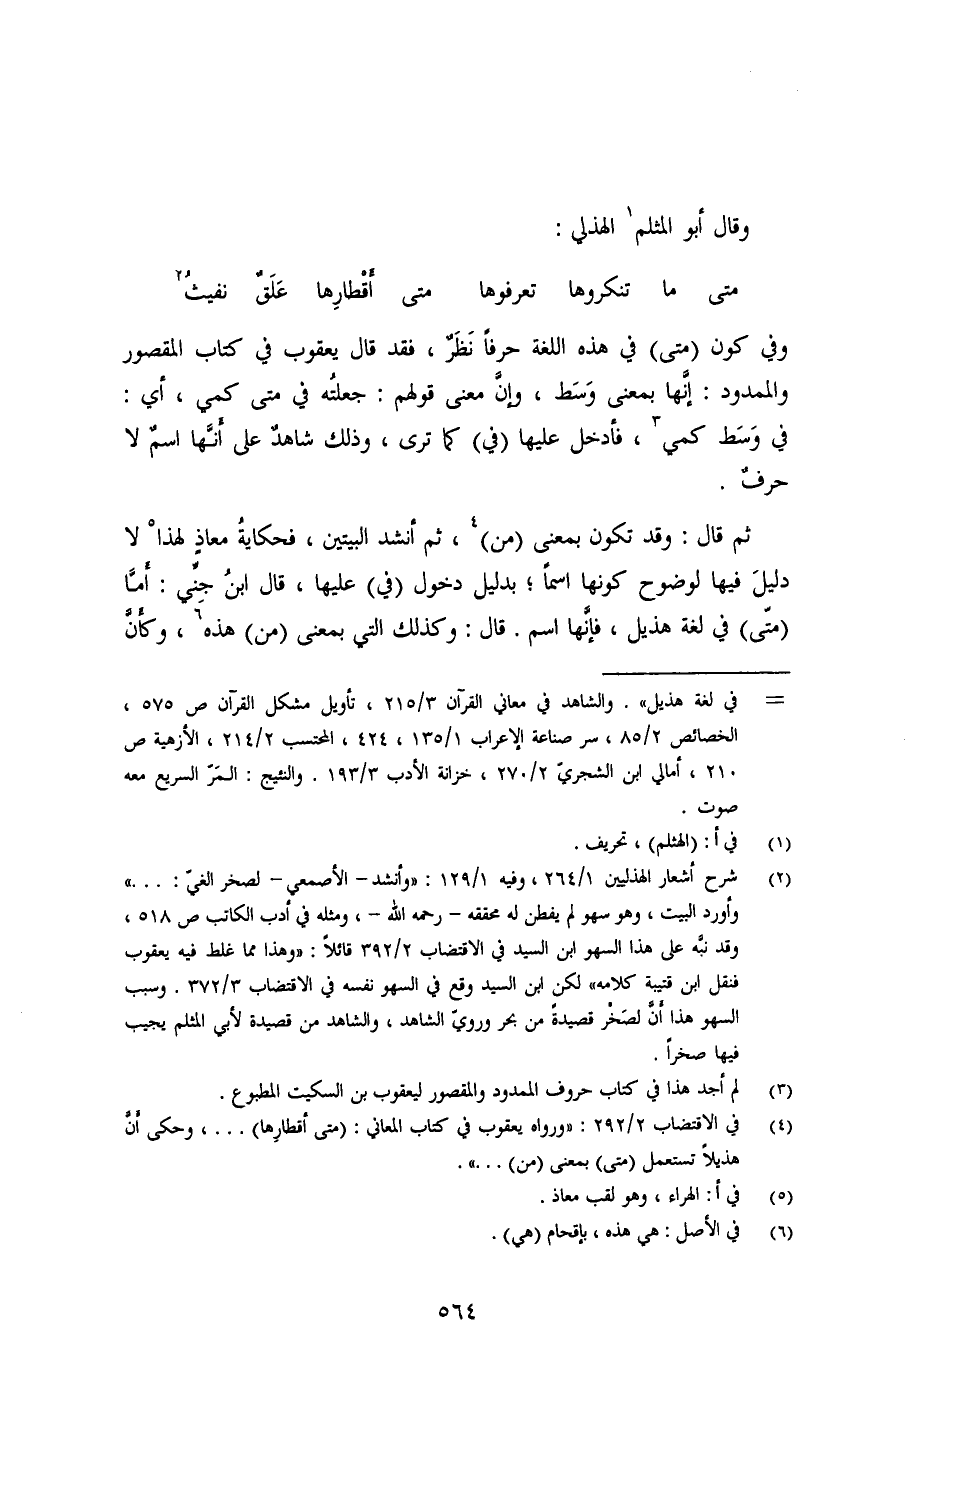 وقال أبو المثلم١ الهذلي :
متى ما تنكروها تعرفوها متى أَقْطارِها عَلَقٌ نفيثُ٢
وفي كون (متى) في هذه اللغة حرفاً نَظَرٌ ، فقد قال يعقوب في كتاب المقصور
والممدود : إنَّها بمعنى وَسَط ، وإنَّ معنى قولهم : جعلتُه في متى كمي ، أي :
في وَسَط كمي٣ ، فأدخل عليها (في) كما ترى ، وذلك شاهدٌ على أنَّها اسمٌ لا
حرفٌ .
ثم قال : وقد تكون بمعنى (من)٤ ، ثم أنشد البيتين ، فحكايةُ معاذٍ لهذا٥ لا
دليلَ فيها لوضوح كونها اسماً ؛ بدليل دخول (في) عليها ، قال ابنُ جِنِّي : أمَّا
(متّى) في لغة هذيل ، فإنَّها اسم . قال : وكذلك التي بمعنى (من) هذه٦ ، وكأنَّ
= في لغة هذيل» . والشاهد في معاني القرآن ٢١٥/٣ ، تأويل مشكل القرآن ص ٥٧٥ ،
الخصائص ٨٥/٢ ، سر صناعة الإعراب ١٣٥/١ ، ٤٢٤ ، المحتسب ٢١٤/٢ ، الأزهية ص
٢١٠ ، أمالي ابن الشجريّ ٢٧٠/٢ ، خزانة الأدب ١٩٣/٣ . والنئيج : المَرّ السريع معه
صوت .
(١) في أ : (الهثلم) ، تحريف .
(٢) شرح أشعار الهذليين ٢٦٤/١ ، وفيه ١٢٩/١ : «وأنشد – الأصمعي – لصخر الغيّ : ...»
وأورد البيت ، وهو سهو لم يفطن له محققه – رحمه الله – ، ومثله في أدب الكاتب ص ٥١٨ ،
وقد نبَّه على هذا السهو ابن السيد في الاقتضاب ٣٩٢/٢ قائلاً : «وهذا مما غلط فيه يعقوب
فنقل ابن قتيبة كلامه» لكن ابن السيد وقع في السهو نفسه في الاقتضاب ٣٧٢/٣ . وسبب
السهو هذا أنَّ لصَخْر قصيدةً من بحر ورويّ الشاهد ، والشاهد من قصيدة لأبي المثلم يجيب
فيها صخراً .
(٣) لم أجد هذا في كتاب حروف الممدود والمقصور ليعقوب بن السكيت المطبوع .
(٤) في الاقتضاب ٢٩٢/٢ : «ورواه يعقوب في كتاب المعاني : (متى أقطارِها) ... ، وحكى أنَّ
هذيلاً تستعمل (متى) بمعنى (من) ...» .
(٥) في أ : الهراء ، وهو لقب معاذ .
(٦) في الأصل : هي هذه ، بإقحام (هي) .
٥٦٤